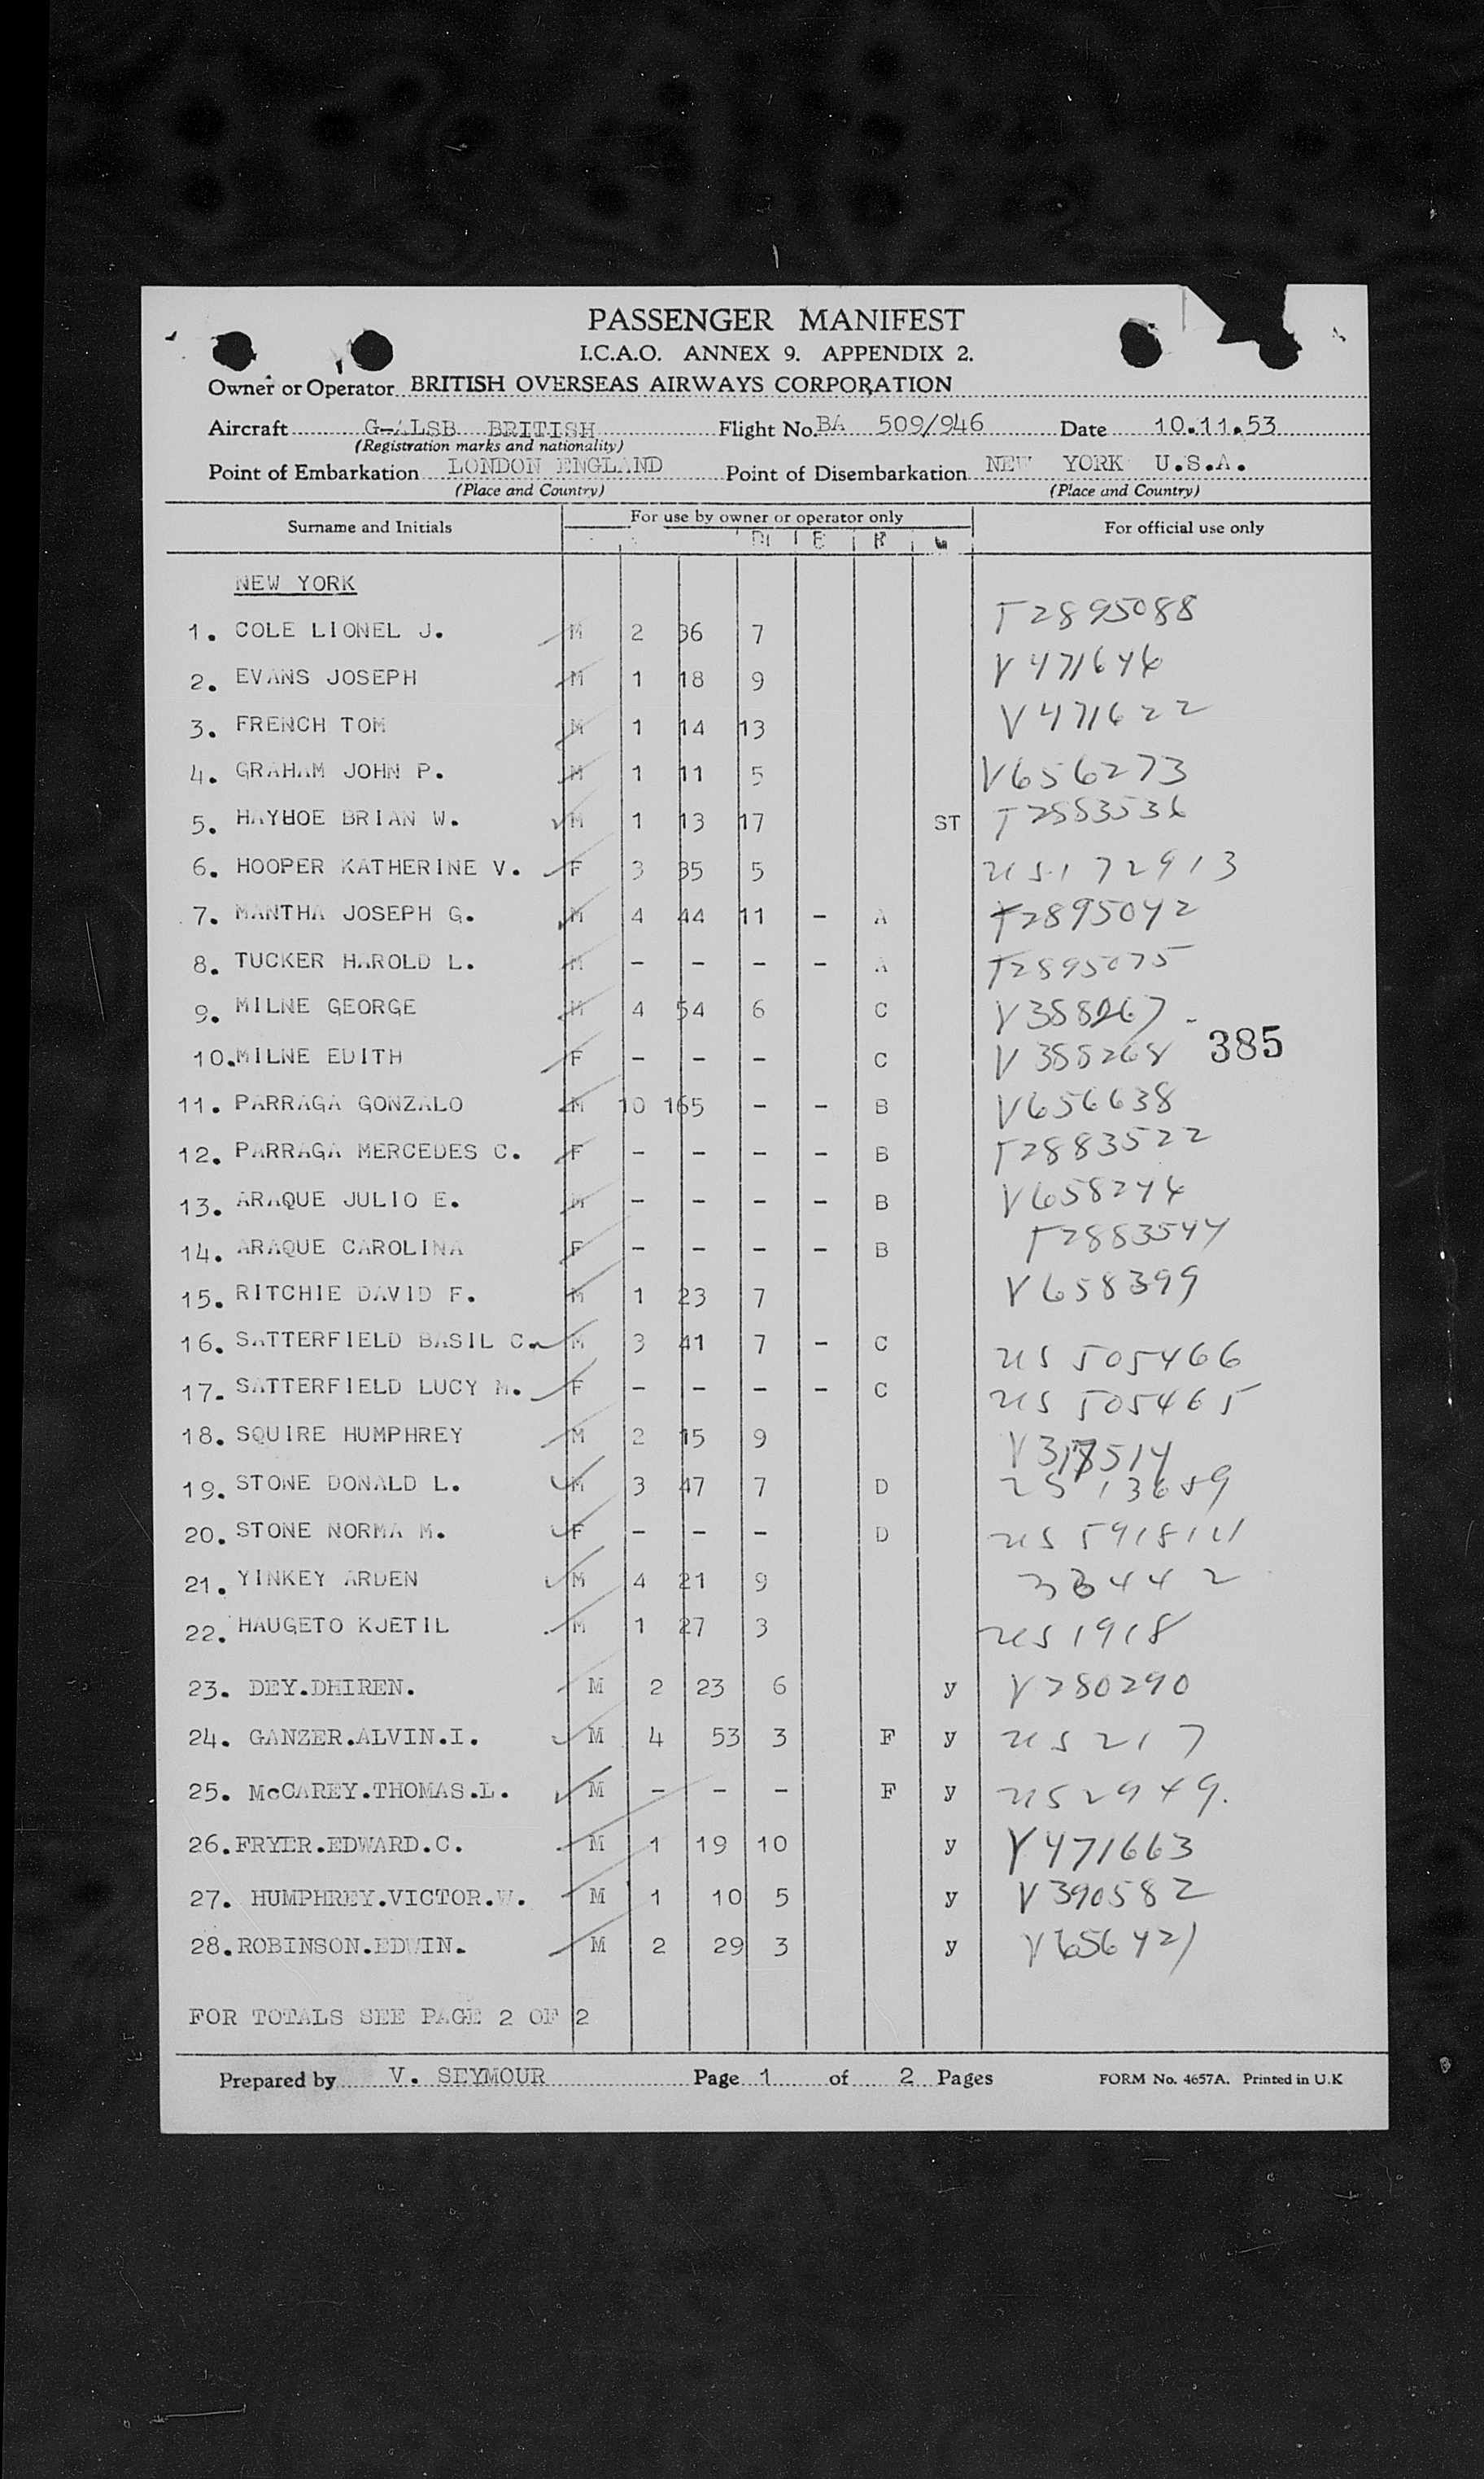 PASSENGER MANIFEST
I.C.A.O. ANNEX 9. APPENDIX 2.
Owner or Operator BRITISH OVERSEAS AIRWAYS CORPORATION
Aircraft G-ALSB BRITISH Flight No. BA 509/946 Date 10.11.53
(Registration marks and nationality)
Point of Embarkation LONDON ENGLAND Point of Disembarkation NEW YORK U.S.A.
(Place and Country) (Place and Country)
Surname and Initials For use by owner or operator only For official use only
NEW YORK
1. COLE LIONEL J. M 2 36 7 T2895088
2. EVANS JOSEPH M 1 18 9 V471646
3. FRENCH TOM M 1 14 13 V471622
4. GRAHAM JOHN P. M 1 11 5 V656273
5. HAYHOE BRIAN W. M 1 13 17 ST T2883536
6. HOOPER KATHERINE V. F 3 35 5 US172913
7. MANTHA JOSEPH G. M 4 44 11 - A T2895042
8. TUCKER HAROLD L. M - - - - A T2895075
9. MILNE GEORGE M 4 54 6 C V388267
385
10. MILNE EDITH F - - - C V388268
11. PARRAGA GONZALO M 10 165 - - B V656638
12. PARRAGA MERCEDES C. F - - - - B T2883522
13. ARAQUE JULIO E. M - - - - B V658246
14. ARAQUE CAROLINA F - - - - B T2883544
15. RITCHIE DAVID F. M 1 23 7 V658399
16. SATTERFIELD BASIL C. M 3 41 7 - C US 505466
17. SATTERFIELD LUCY M. F - - - - C US 505465
18. SQUIRE HUMPHREY M 2 15 9
19. STONE DONALD L. M 3 47 7 D
20. STONE NORMA M. F - - - D
21. YINKEY ARDEN M 4 21 9
22. HAUGETO KJETIL M 1 27 3 US1918
23. DEY.DHIREN. M 2 23 6 y V280290
24. GANZER.ALVIN.I. M 4 53 3 F y US217
25. McCAREY.THOMAS.L. M - - - F y US2949.
26. FRYER.EDWARD.C. M 1 19 10 y V471663
27. HUMPHREY.VICTOR.W. M 1 10 5 y V390582
28. ROBINSON.EDWIN. M 2 29 3 y V656421
FOR TOTALS SEE PAGE 2 OF 2
Prepared by V. SEYMOUR Page 1 of 2 Pages FORM No. 4657A. Printed in U.K